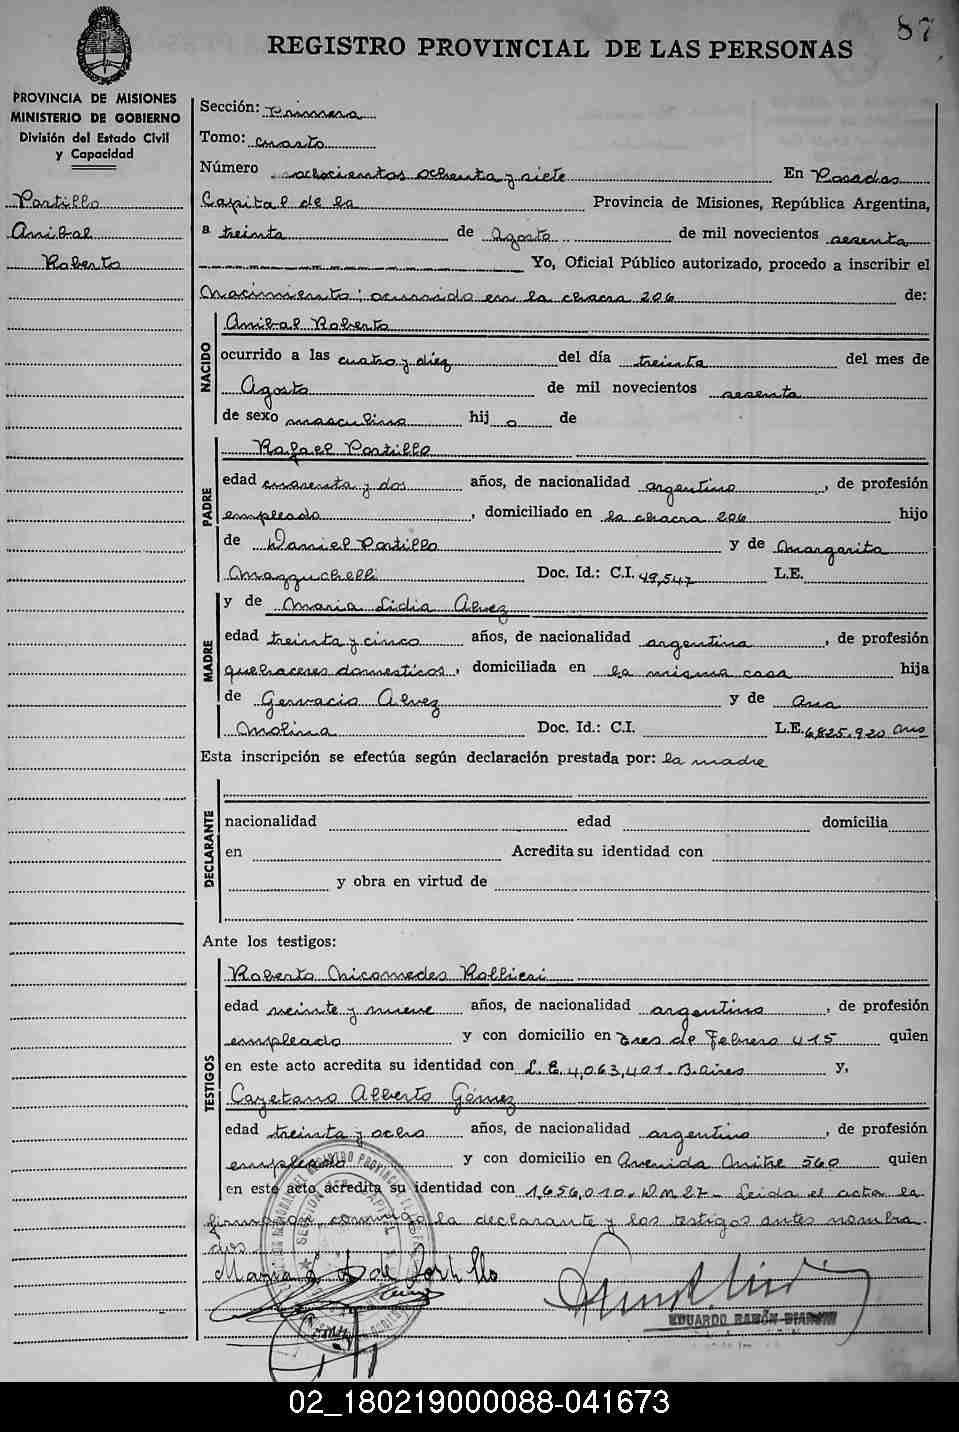 87
REGISTRO PROVINCIAL DE LAS PERSONAS
PROVINCIA DE MISIONES
MINISTERIO DE GOBIERNO
División del Estado Civil
y Capacidad
Portillo
Anibal
Roberto
Sección: Primera
Tomo: cuarto
Número ochocientos ochenta y siete En Posadas
Capital de la Provincia de Misiones, República Argentina,
a treinta de Agosto de mil novecientos sesenta
Yo, Oficial Público autorizado, procedo a inscribir el
Nacimiento; ocurrido en la chacra 206 de:
NACIDO
Anibal Roberto
ocurrido a las cuatro y diez del día treinta del mes de
Agosto de mil novecientos sesenta
de sexo masculino hij o de
PADRE
Rafael Portillo
edad cuarenta y dos años, de nacionalidad argentino, de profesión
empleado, domiciliado en la chacra 206 hijo
de Daniel Portillo y de Margarita
Mazzuchelli Doc. Id.: C.I. 49,547 L.E.
MADRE
y de Maria Lidia Alvez
edad treinta y cinco años, de nacionalidad argentina, de profesión
quehaceres domesticos, domiciliada en la misma casa hija
de Gervacio Alvez y de Ana
Molina Doc. Id.: C.I. L.E. 6825.920 Cnas
Esta inscripción se efectúa según declaración prestada por: la madre
DECLARANTE
nacionalidad edad domicilia
en Acredita su identidad con
y obra en virtud de
Ante los testigos:
TESTIGOS
Roberto Nicomedes Rollieri
edad veinte y nueve años, de nacionalidad argentino, de profesión
empleado y con domicilio en Tres de Febrero 415 quien
en este acto acredita su identidad con L.E. 4,063,401. B. Aires y,
Cayetano Alberto Gómez
edad treinta y ocho años, de nacionalidad argentino, de profesión
empleado y con domicilio en Avenida Mitre 560 quien
en este acto acredita su identidad con 1,656,010. D M 27 - Leida el acta la
firmaron conmigo la declarante y los testigos antes nombra
dos.
Maria L A de Portillo
EDUARDO RAMÓN
02_180219000088-041673